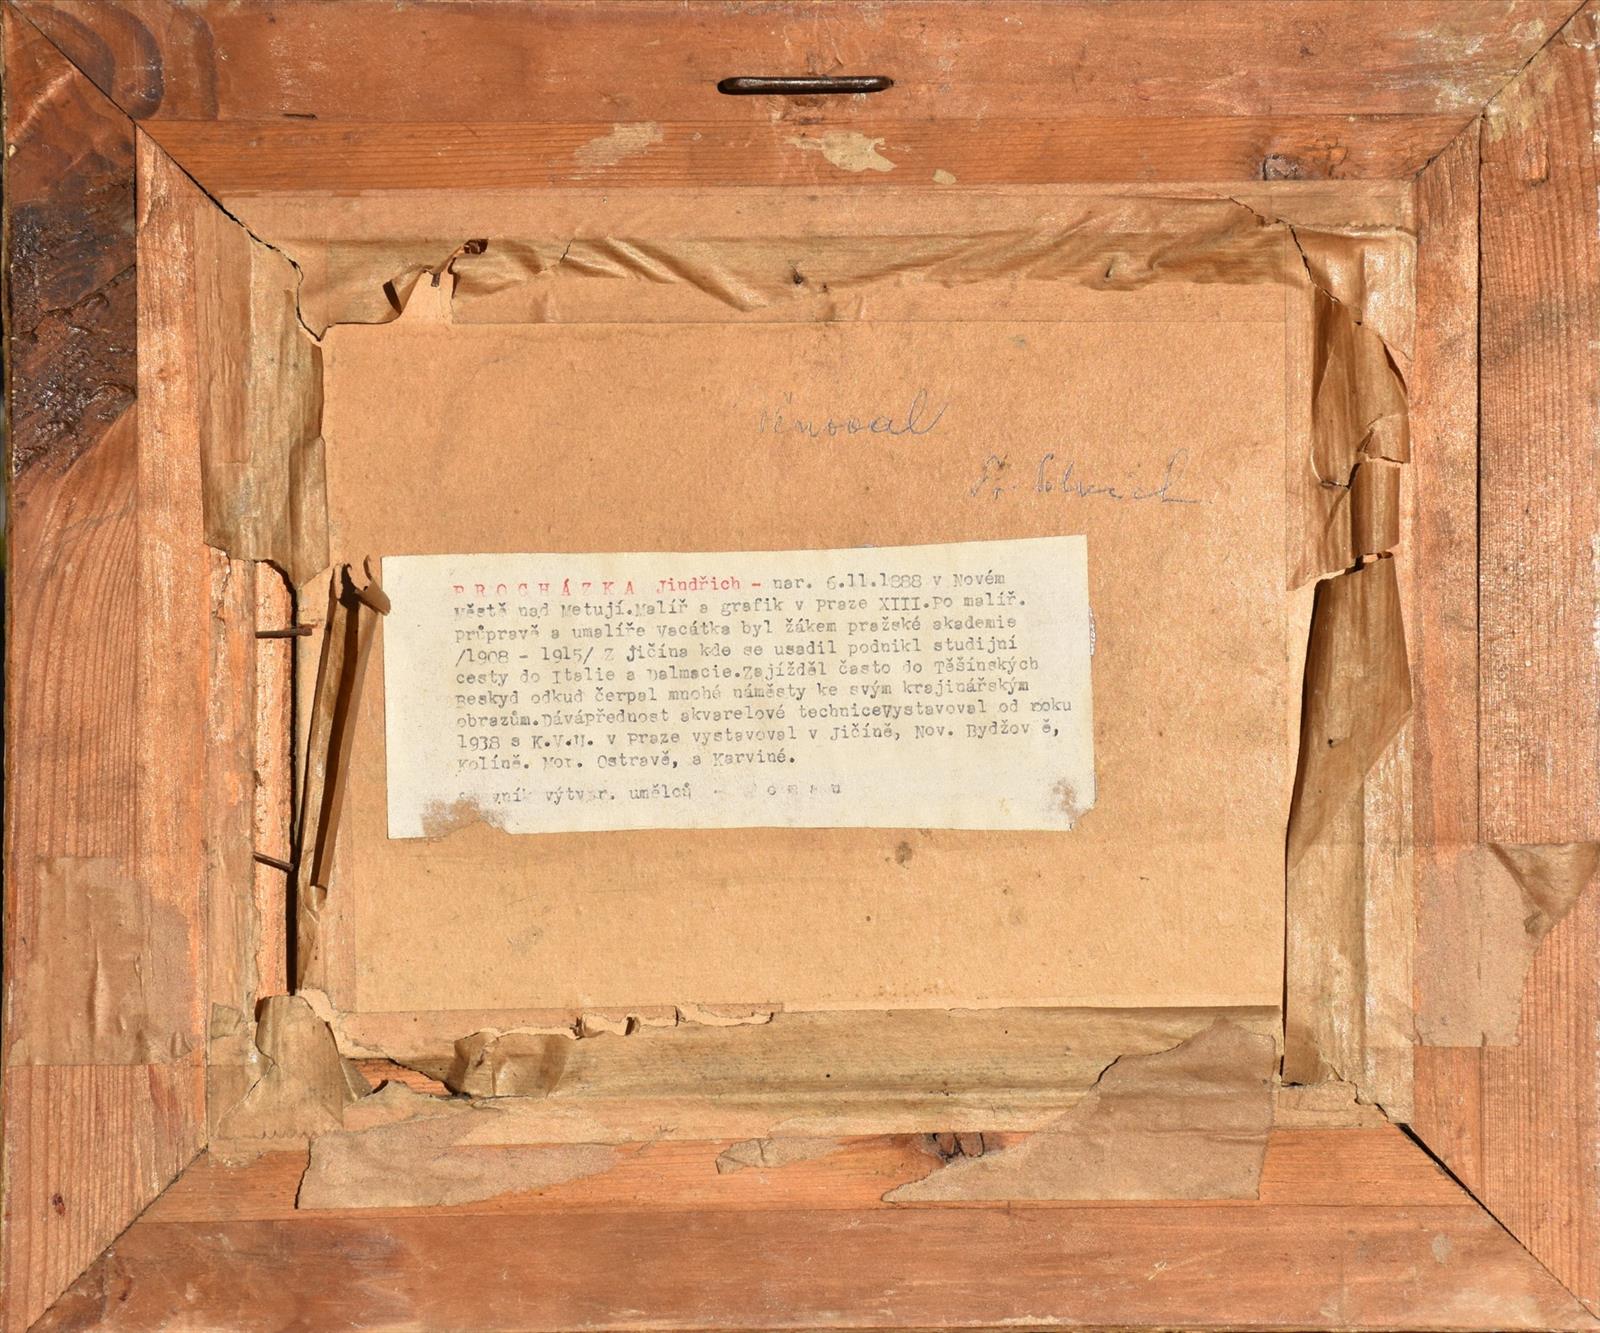 věnoval
P R O C H Á Z K A Jindřich - nar. 6.11.1888 v Novém
Městě nad Metují.Malíř a grafik v Praze XIII.Po malíř.
průpravě a umalíře Vacátka byl žákem pražské akademie
/1908 - 1915/ Z Jičína kde se usadil podnikl studijní
cesty do Italie a Dalmacie.Zajížděl často do Těšínských
Beskyd odkud čerpal mnohé náměsty ke svým krajinářským
obrazům.Dávápřednost akvarelové techniceVystavoval od roku
1938 s K.V.U. v Praze vystavoval v Jičíně, Nov. Bydžov ě,
Kolíně. Mor. Ostravě, a Karviné.
výtvar. umělců -